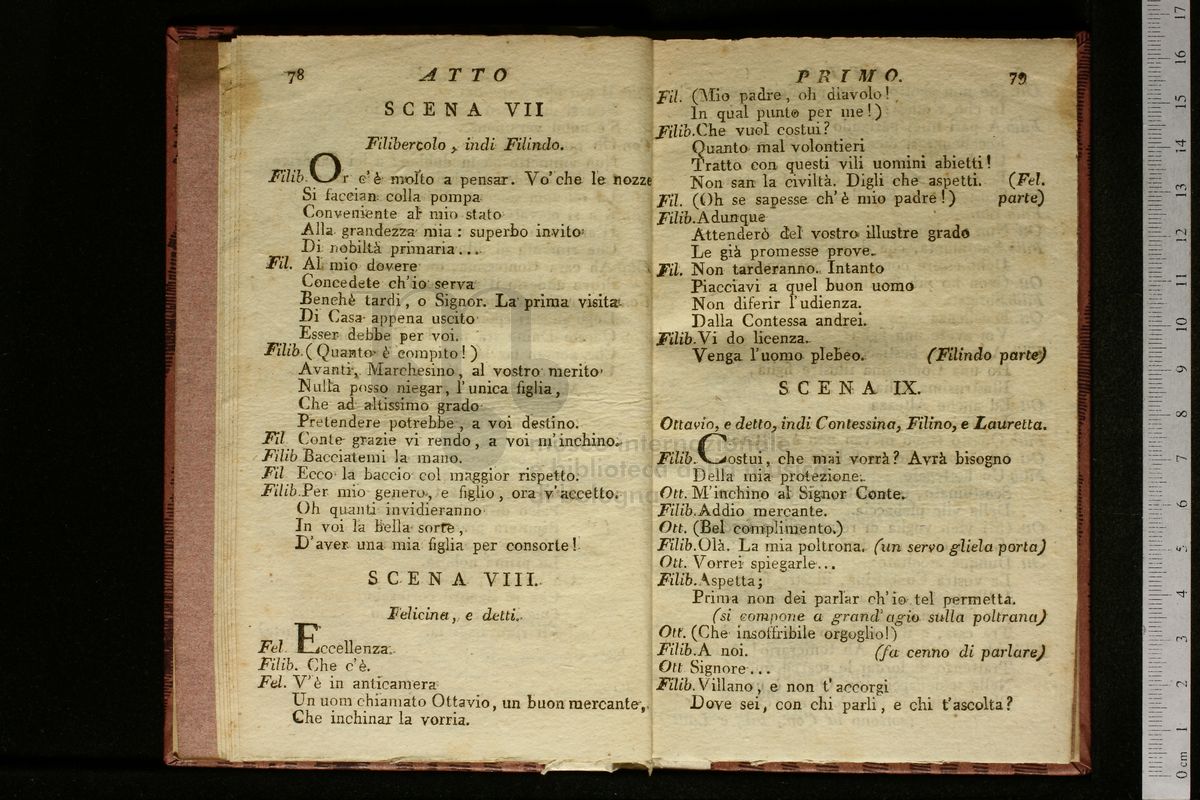 78
ATTO
SCENA VII
Filibercolo, indi Filindo.
Filib. Or c'è molto a pensar. Vo' che le nozze
Si faccian colla pompa
Conveniente al mio stato
Alla grandezza mia: superbo invito
Di nobiltà primaria...
Fil. Al mio dovere
Concedete ch'io serva
Benchè tardi, o Signor. La prima visita
Di Casa appena uscito
Esser debbe per voi.
Filib. (Quanto è compito!)
Avanti, Marchesino, al vostro merito
Nulla posso niegar, l'unica figlia,
Che ad altissimo grado
Pretendere potrebbe, a voi destino.
Fil Conte grazie vi rendo, a voi m'inchino.
Filib Bacciatemi la mano.
Fil Ecco la baccio col maggior rispetto.
Filib. Per mio genero, e figlio, ora v'accetto.
Oh quanti invidieranno
In voi la bella sorte,
D'aver una mia figlia per consorte!
SCENA VIII.
Felicina, e detti.
Fel Eccellenza.
Filib. Che c'è.
Fel. V'è in anticamera
Un uom chiamato Ottavio, un buon mercante,
Che inchinar la vorria.
PRIMO.
79
Fil. (Mio padre, oh diavolo!
In qual punto per me!)
Filib. Che vuol costui?
Quanto mal volontieri
Tratto con questi vili uomini abietti!
Non san la civiltà. Digli che aspetti. (Fel.
Fil. (Oh se sapesse ch'è mio padre!) parte)
Filib. Adunque
Attenderò del vostro illustre grado
Le già promesse prove.
Fil. Non tarderanno. Intanto
Piacciavi a quel buon uomo
Non diferir l'udienza.
Dalla Contessa andrei.
Filib. Vi do licenza.
Venga l'uomo plebeo. (Filindo parte)
SCENA IX.
Ottavio, e detto, indi Contessina, Filino, e Lauretta.
Filib. Costui, che mai vorrà? Avrà bisogno
Della mia protezione.
Ott. M'inchino al Signor Conte.
Filib. Addio mercante.
Ott. (Bel complimento.)
Filib. Olà. La mia poltrona. (un servo gliela porta)
Ott. Vorrei spiegarle...
Filib. Aspetta;
Prima non dei parlar ch'io tel permetta.
(si compone a grand'agio sulla poltrana)
Ott. (Che insoffribile orgoglio!)
Filib. A noi. (fa cenno di parlare)
Ott Signore...
Filib. Villano, e non t'accorgi
Dove sei, con chi parli, e chi t'ascolta?
museo internazionale
e biblioteca della musica
0 cm 1 2 3 4 5 6 7 8 9 10 11 12 13 14 15 16 17